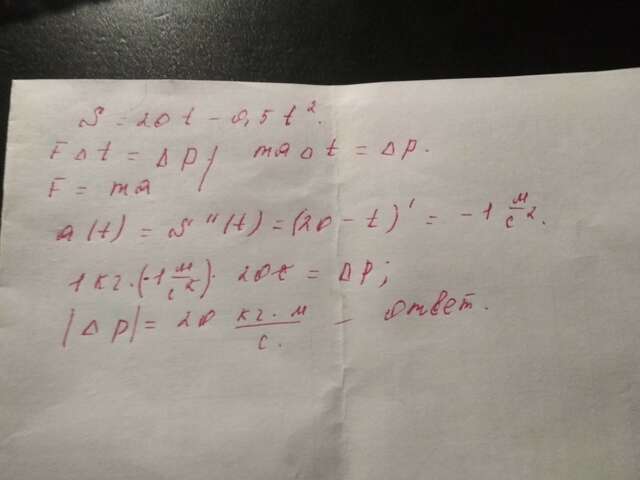 S = 20t - 0,5t².
F Δt = Δp; ma Δt = Δp.
F = ma
a(t) = S''(t) = (20 - t)' = -1 м/с².
1 кг·(-1 м/с²)· 20с = Δp;
|Δp| = 20 кг·м/с. - ответ.